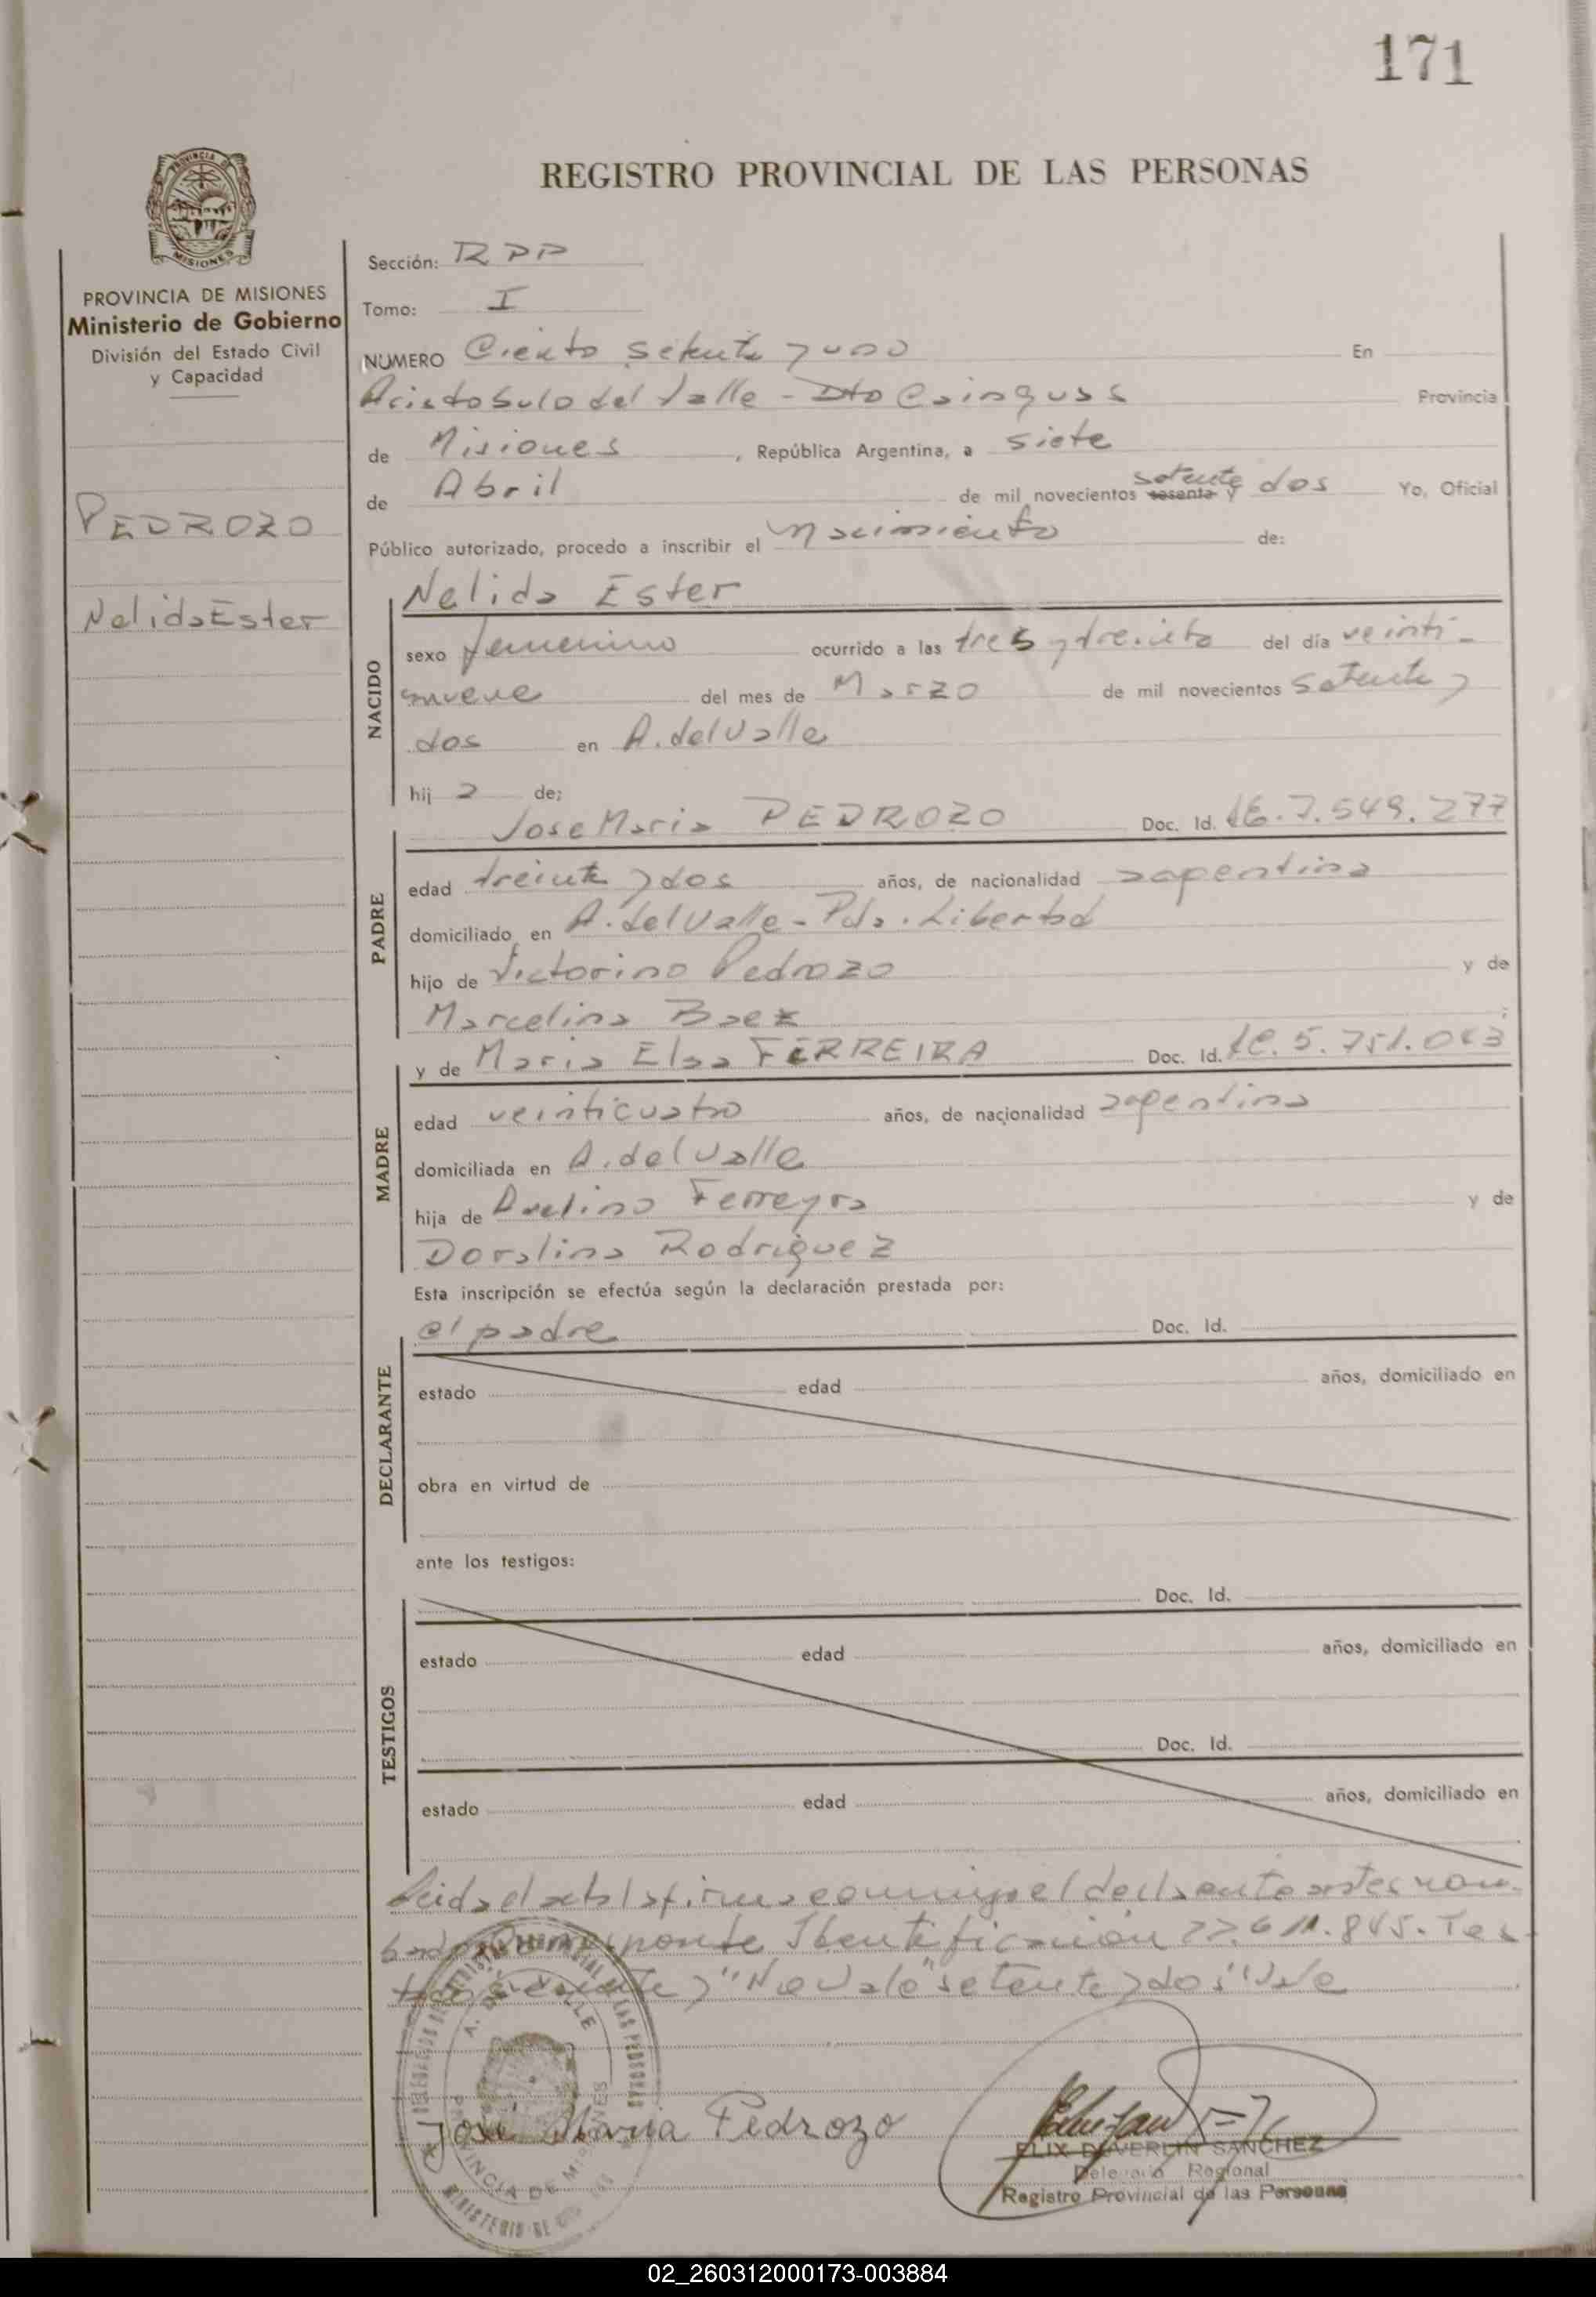 171
REGISTRO PROVINCIAL DE LAS PERSONAS
PROVINCIA DE MISIONES
Ministerio de Gobierno
División del Estado Civil
y Capacidad
PEDROZO
Nelida Ester
Sección: RPP
Tomo: I
NUMERO Ciento setenta y uno En
Aristobulo del Valle - Dto Cainguas Provincia
de Misiones, República Argentina, a siete
de Abril de mil novecientos sesenta y setenta dos Yo, Oficial
Público autorizado, procedo a inscribir el nacimiento de:
Nelida Ester
NACIDO
sexo femenino ocurrido a las tres y treinta del día veinti-
nueve del mes de Marzo de mil novecientos setenta y
dos en A. del Valle
hij a de;
Jose Maria PEDROZO Doc. Id. 7.549.277
PADRE
edad treinta y dos años, de nacionalidad argentina
domiciliado en A. del Valle - Pda. Libertad
hijo de Victorino Pedrozo y de
Marcelina Baez ;
y de Maria Elsa FERREIRA Doc. Id. 5.751.0
MADRE
edad veinticuatro años, de nacionalidad argentina
domiciliada en A. del Valle
hija de Avelino Ferreyra y de
Doralina Rodriguez
Esta inscripción se efectúa según la declaración prestada por:
el padre Doc. Id.
DECLARANTE
estado edad años, domiciliado en
obra en virtud de
ante los testigos:
Doc. Id.
TESTIGOS
estado edad años, domiciliado en
Doc. Id.
estado edad años, domiciliado en
Leida el acta la firma conmigo el declarante antes nom-
Identificacion 22.611.845. Tes-
y "No Vale" setenta y dos" Vale
A. DEL VALLE
PROVINCIA DE MISIONES
José Maria Pedrozo
ELIX DUVERLIN SANCHEZ
Delegado Regional
Registro Provincial de las Personas
02_260312000173-003884